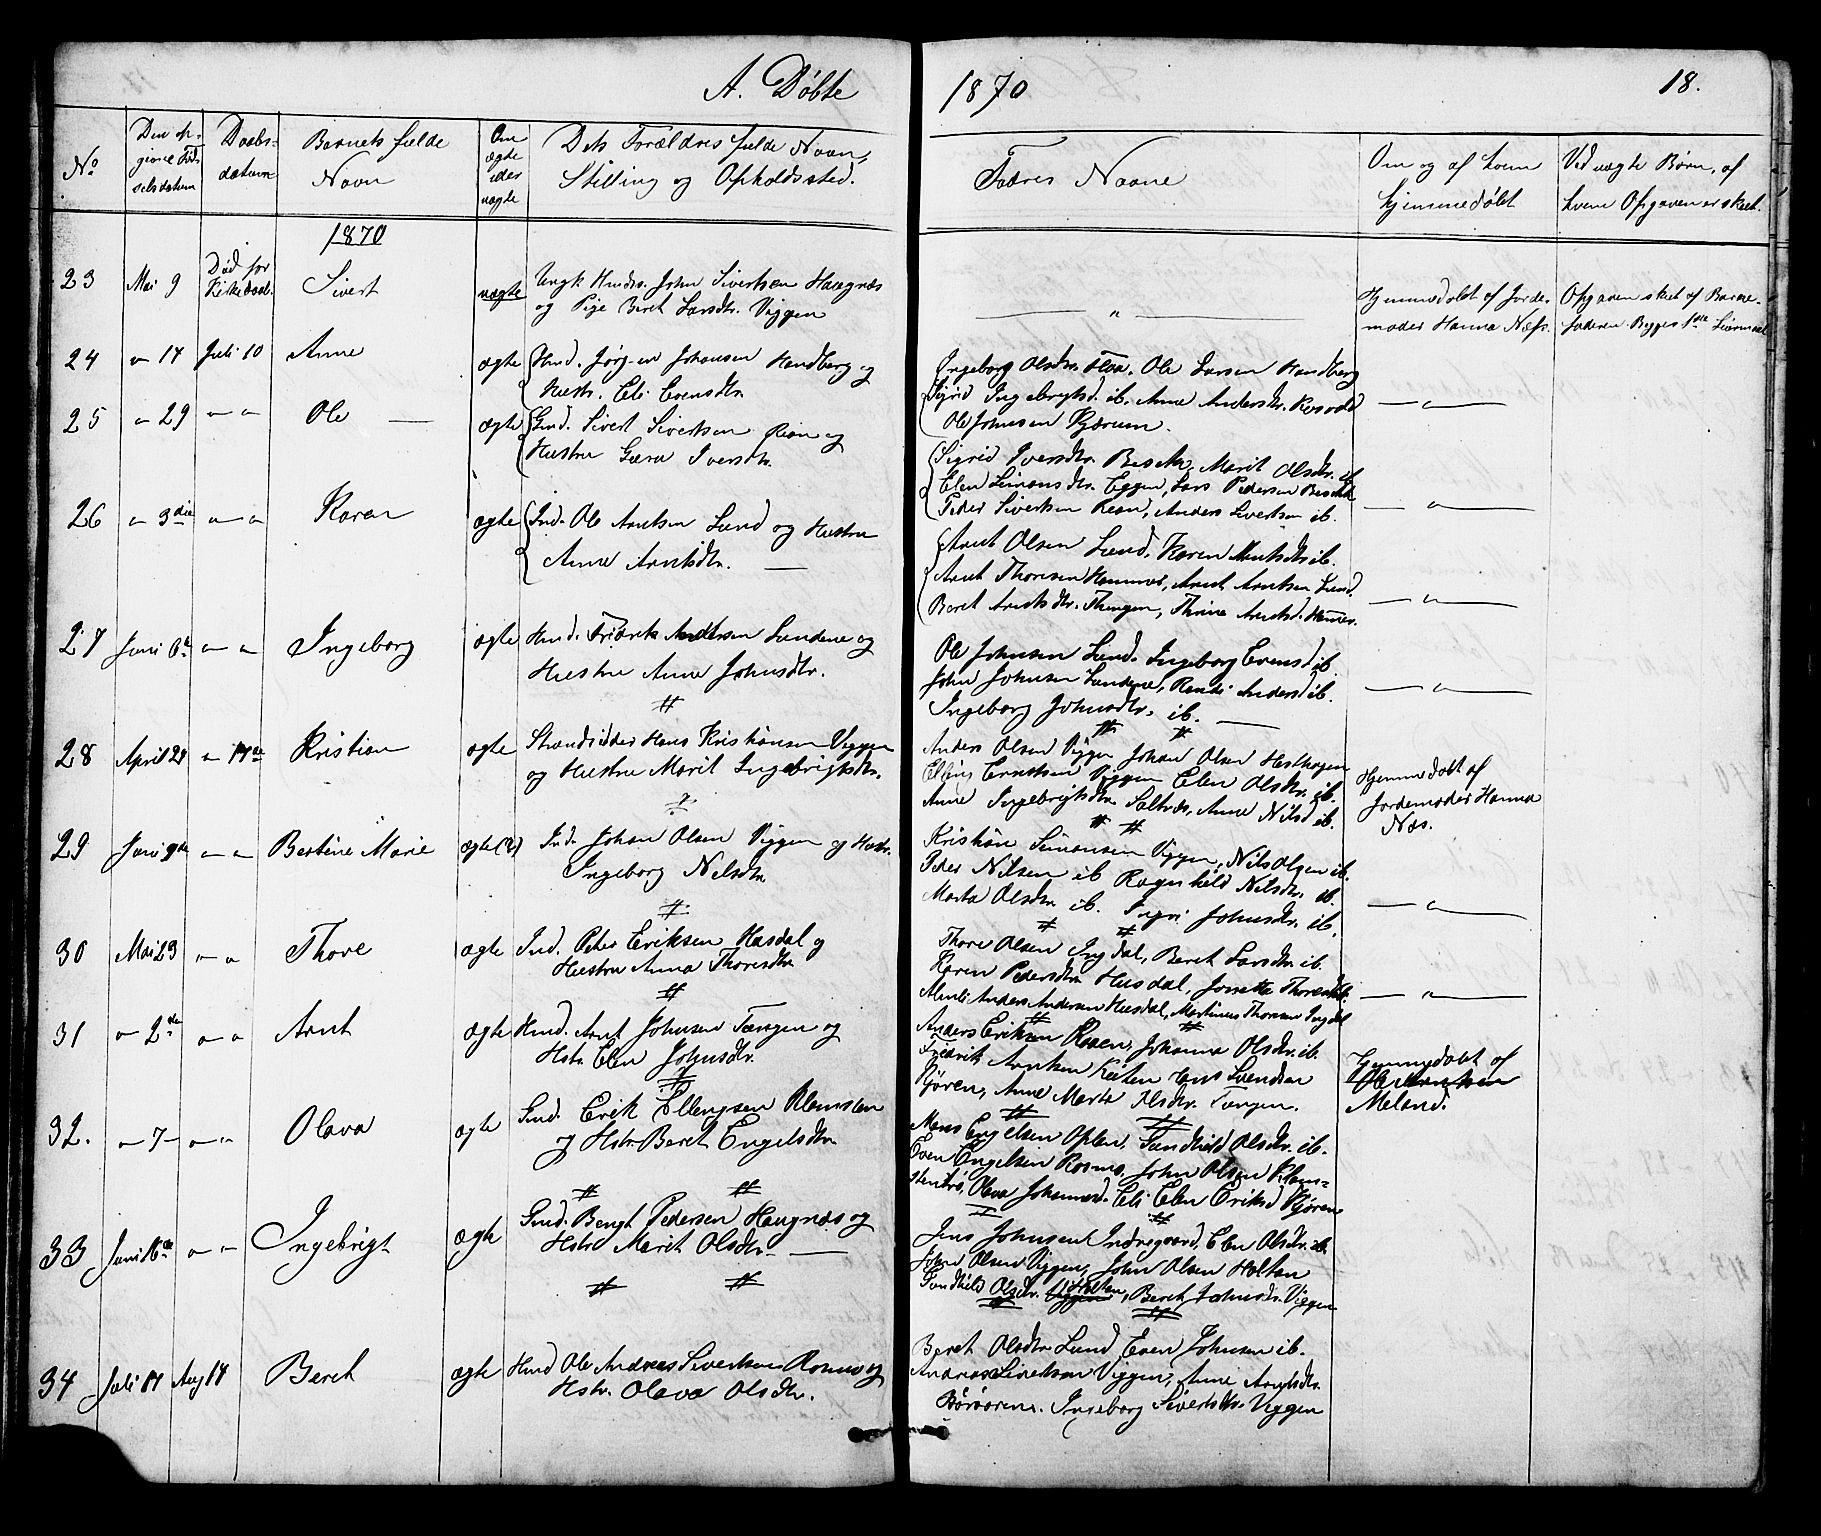 A. Døbte
1870
18.
No
Den opgivne Fødselsdatum
Daabsdatum
Barnets fulde Navn
Om ægte eller uægte
Dets Forældres fulde Navn, Stilling og Opholdssted.
Faddres Navne
Om og af hvem hjemmedøbt
Ved uægte Børn, af hvem Opgaven er skeet.
1870
23 Mai 9 Død før Kirkedaab. Sivert uægte Ungk John Sivertsen Haugnæs
og Pige Beret Larsdtr. Viggen
— " —
Hjemmedøbt af Jordemoder Hanna Næss.
Opgaven skeet af Barnefaderen. Begges 1ste Leiermaal
24 " 14 Juli 10 Anne ægte Hmd. Jørgen Johansen Handberg og
Hustr. Eli Evensdtr.
Ingeborg Olsdtr. Ole Larsen Handberg
Sigrid Ingebrigtsd. ib. Anne Andersdtr.
Ole Johnsen Kjærem.
— " —
25 " 29 " " Ole — ægte Gmd. Sivert Sivertsen Rian og
Hustru Iversdtr.
Sigrid Iversdtr. Marit Olsdtr. ib
Elen Simonsdtr. Eggen, Lars Pedersen
Peder Sivertsen Rean, Anders Sivertsen ib.
— " —
26 " 3die " " Karen ægte Ind. Ole Arntsen Lund og Hustru
Anne Arntsdtr. —
Arnt Olsen Lund, Karen Arntsdtr ib.
Arnt Thoresen Hammer, Arnt Arntsen Lund.
Beret Arntsdtr. Thrine Arntsd. Hammer.
— " —
27 Juni 6te " " Ingeborg ægte Hmd. Andersen Lundene og
Hustru Anne Johnsdtr.
#
Ole Johnsen Lund. Ingeborg Evensd ib.
John Johnsen Lundene, Randi Andersd ib.
Ingeborg Johnsdtr. ib. —
# #
— " —
28 April 21 " 17de Kristian ægte Strandsidder Hans Kristiansen Viggen
og Hustru Marit Ingebrigtsdtr.
Anders Olsen Viggen Johan Olsen Hesthagen
Elling Erntsen Viggen Elen Olsdtr. ib.
Anne Ingebrigtsdtr. Saltnes, Anne Nilsd ib.
# #
Hjemmedøbt af
Jordemoder Hanna
Næs.
29 Juni 9de " " Bertine Marie ægte (2) Ind. Johan Olsen Viggen og Hustr.
Ingeborg Nelsdtr
#
Kristian Simonsen Viggen, Nils Olsen ib.
Peder Nilsen ib Ragnhild Nilsdtr. ib.
Marta Olsdtr ib. Ingri Johnsdtr. ib.
# #
— " —
30 Mai 23 " " Thore ægte Ind. Peter Eriksen Husdal og
Hustru Anna Thoresdtr
#
Thore Olsen Ingdal, Beret Larsdtr ib.
Karen Pedersdtr Husdal, Jonetta Thoresdtr.
Anders Andersen Husdal, Martinus Thoresen Ingdal
# #
— " —
31 " 2den " " Arnt ægte Hmd. Arnt Johnsen Tangen og
Hstr. Elen Johnsdtr.
#
Anders Eriksen Johanna Olsdtr. ib.
Fredrik Arntsen Hans Svendsen
Kjøren, Anne Marta Olsdtr. Tangen.
# #
Hjemmedøbt af
Meland.
32. " 7 " " Olava ægte Gmd. Erik Ellengsen Klemsten
og Hstr. Beret Engelsdtr.
# #
Mons Engelsen Oplen, Gundhild Olsdtr. ib.
Even Engelsen Rosmo, John Olsen Klemstentrø,
Olava Johannesd. Eli Elen Eriksd Kjøren
# #
33 Juni 16de " " Ingebrigt ægte Gmd. Bengt Pedersen Haugnæs og
Hstr Marit Olsdtr. —
# #
Jens Johnsen Indregaard, Elen Olsdtr. ib.
John Olsen Viggen, John Olsen Holten
Gundhild Olsdtr. Holten, Beret Johnsdtr. Viggen
# #
34 Juli 11 Aug 14 Beret ægte Hmd Ole Andreas Sivertsen Rosmo og
Hstr. Olava Olsdtr.
Beret Olsdtr Lund, Even Johnsen ib.
Andreas Sivertsen Viggen, Anne Arntsdtr.
Børøren. Ingeborg Sivertsdtr. Viggen